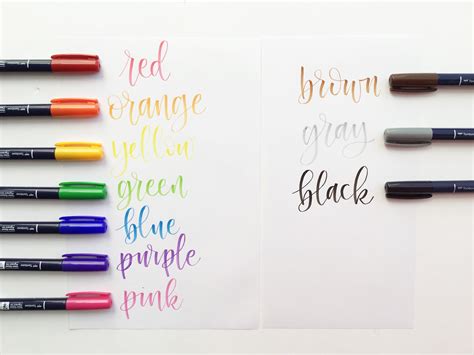 red
orange
yellow
green
blue
purple
pink
brown
gray
black